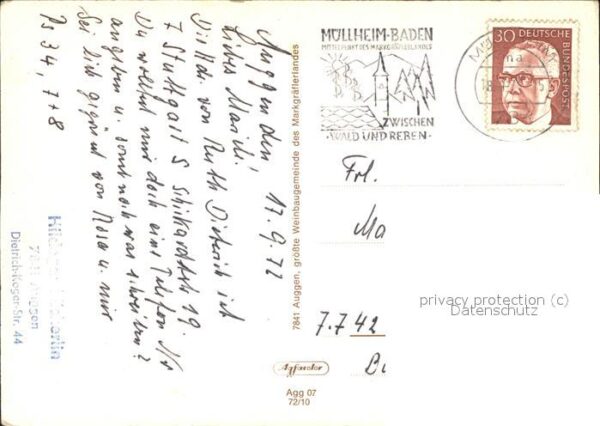 Auggen den, 17.9.72
Liebes Mariele!
Die Adr. von Ruth Dieterich ist
7 Stuttgart S Schikardtstr 19.
Du wolltest mir doch eine Telefon Nr
angeben u. sonst noch was schreiben?
Sei lieb gegrüsst von Rosa u. mir
Ps 34, 7+8
Dietrich-Koger-Str. 44
7841 Auggen, größte Weinbaugemeinde des Markgräflerlandes
MÜLLHEIM-BADEN
MITTELPUNKT DES MARKGRÄFLERLANDES
ZWISCHEN
WALD UND REBEN
30 DEUTSCHE
BUNDESPOST
Frl.
Ma
privacy protection (c)
Datenschutz
7.742
Agfacolor
Agg 07
72/10